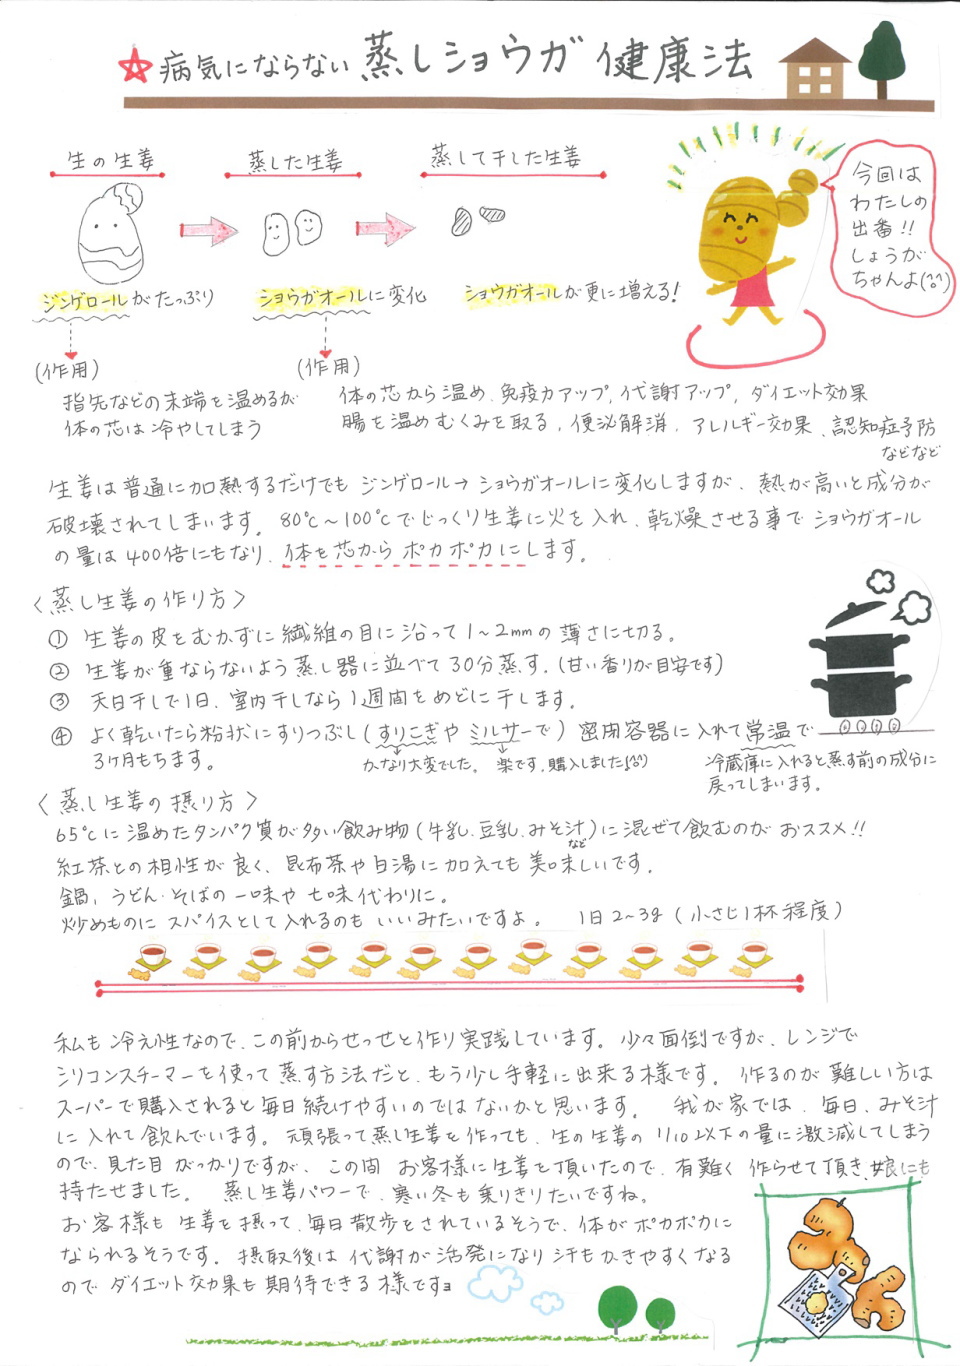 ☆病気にならない 蒸しショウガ 健康法
生の生姜
蒸した生姜
蒸して干した生姜
今回は
わたしの
出番!!
しょうが
ちゃんよ(^^)
ジンゲロールがたっぷり
ショウガオールに変化
ショウガオールが更に増える!
(作用)
(作用)
指先などの末端を温めるが
体の芯は冷やしてしまう
体の芯から温め、免疫力アップ,代謝アップ,ダイエット効果
腸を温めむくみを取る,便泌解消,アレルギー効果、認知症予防
などなど
生姜は普通に加熱するだけでもジンゲロール→ショウガオールに変化しますが、熱が高いと成分が
破壊されてしまいます。80℃~100℃でじっくり生姜に火を入れ、乾燥させる事でショウガオール
の量は400倍にもなり、体を芯からポカポカにします。
〈蒸し生姜の作り方〉
① 生姜の皮をむかずに繊維の目に沿って1~2mmの薄さに切る。
② 生姜が重ならないよう蒸し器に並べて30分蒸す。(甘い香りが目安です)
③ 天日干しで1日、室内干しなら1週間をめどに干します。
④ よく乾いたら粉状にすりつぶし(すりこぎやミルサーで)密閉容器に入れて常温で
3ヶ月もちます。
かなり大変でした。
楽です,購入しました(^^)
冷蔵庫に入れると蒸す前の成分に
戻ってしまいます。
〈蒸し生姜の摂り方〉
65℃に温めたタンパク質が多い飲み物(牛乳、豆乳、みそ汁など)に混ぜて飲むのがおススメ!!
紅茶との相性が良く、昆布茶や白湯に加えても美味しいです。
鍋,うどん・そばの一味や七味代わりに。
炒めものにスパイスとして入れるのもいいみたいですよ。 1日2~3g(小さじ1杯程度)
私も冷え性なので、この前からせっせと作り実践しています。少々面倒ですが、レンジで
シリコンスチーマーを使って蒸す方法だと、もう少し手軽に出来る様です。作るのが難しい方は
スーパーで購入されると毎日続けやすいのではないかと思います。 我が家では、毎日、みそ汁
に入れて飲んでいます。頑張って蒸し生姜を作っても、生の生姜の1/10以下の量に激減してしまう
ので、見た目がっかりですが、この間お客様に生姜を頂いたので、有難く作らせて頂き、娘にも
持たせました。 蒸し生姜パワーで、寒い冬も乗りきりたいですね。
お客様も生姜を摂って、毎日散歩をされているそうで、体がポカポカに
なられるそうです。摂取後は代謝が活発になり汗もかきやすくなる
のでダイエット効果も期待できる様ですョ